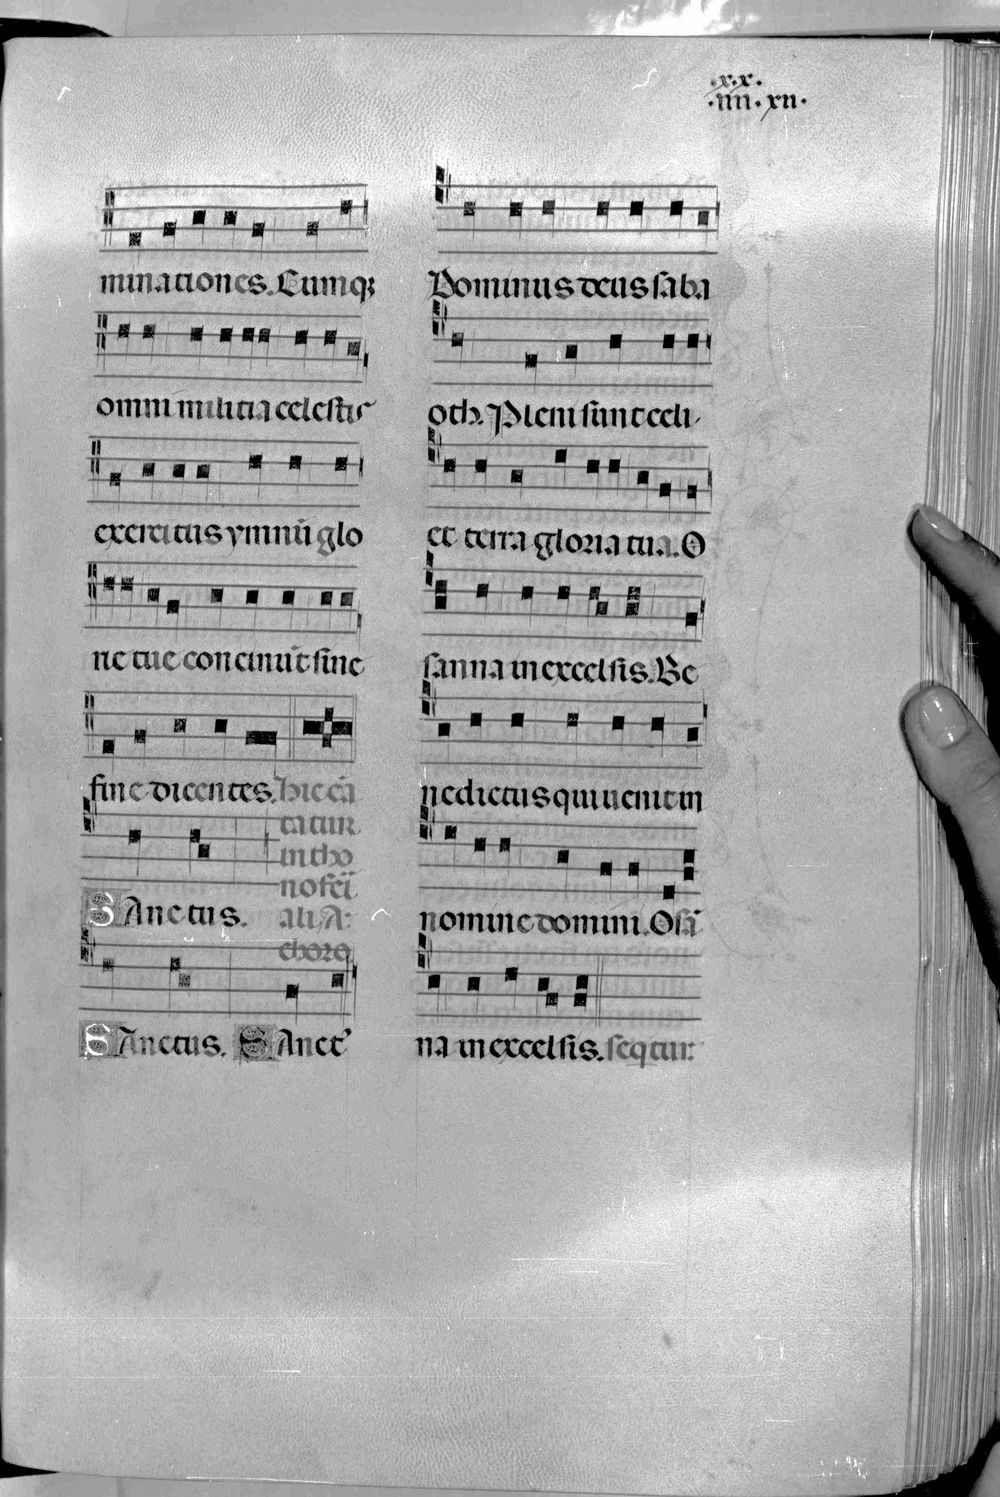 .x.x.
.iiii.xii.
minationes. Cumqꝫ
omni militia celestis
exercitus ymnū glo
rie tue concinūt sine
fine dicentes. hic cā
tatur
in tho
no sci
ali. A
choro
SAnctus.
SAnctus. SAnctꝰ
Dominus deus saba
oth. Pleni sunt celi
et terra gloria tua. O
sanna in excelsis. Be
nedictus qui uenit in
nomine domini. Osā
na in excelsis. seqtur.